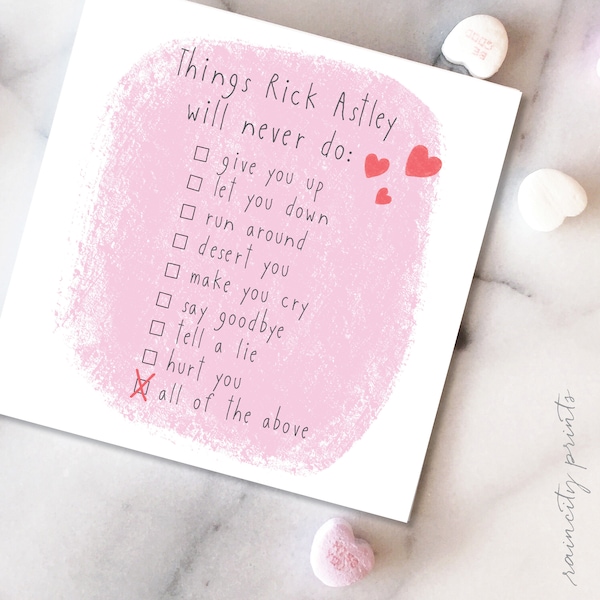 Things Rick Astley
will never do:
give you up
let you down
run around
desert you
make you cry
say goodbye
tell a lie
hurt you
all of the above
BE
GOOD
raincity prints